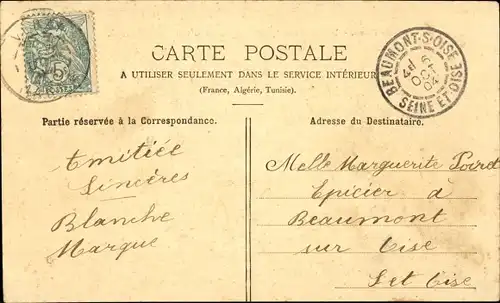 CARTE POSTALE
A UTILISER SEULEMENT DANS LE SERVICE INTÉRIEUR
(France, Algérie, Tunisie).
BEAUMONT-S-OISE
6
OCT
04
SEINE ET OISE
Partie réservée à la Correspondance.
Amitiée
Sincères
Blanche
Marque
Adresse du Destinataire.
Melle Marguerite Poiret
Epicier à
Beaumont
sur Oise
S et Oise